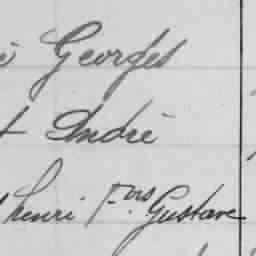 Georges
André
henri F.ois Gustave